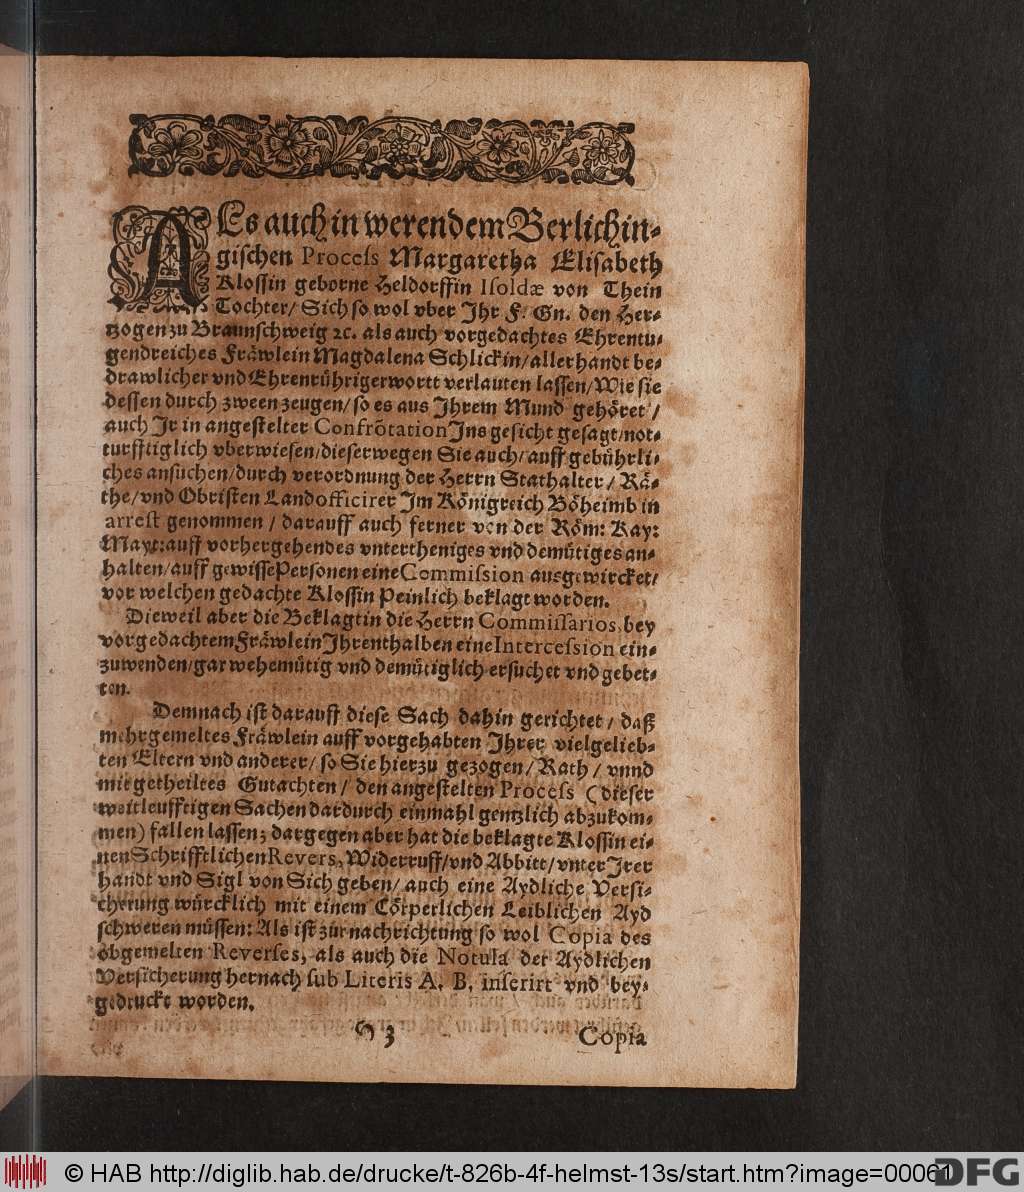 ALs auch in werendem Berlichin-
gischen Process Margaretha Elisabeth
Klossin geborne Zeldorffin Isoldæ von Thein
Tochter/ Sich so wol vber Jhr F. Gn. den Her-
tzogen zu Braunschweig ꝛc. als auch vorgedachtes Ehrentu-
gendreiches Fräwlein Magdalena Schlickin/ allerhandt be-
drawlicher vnd Ehrenrühriger wortt verlauten lassen/ Wie sie
dessen durch zween zeugen/ so es aus Jhrem Mund gehöret/
auch Jr in angestelter Confrõtation Jns gesicht gesagt/ not-
turfftiglich vberwiesen/ dieserwegen Sie auch/ auff gebührli-
ches ansuchen/ durch verordnung der Herrn Stathalter/ Rä-
the/ vnd Obristen Landofficirer Jm Königreich Böheimb in
arrest genommen/ darauff auch ferner von der Röm: Kay:
Mayt: auff vorhergehendes vntertheniges vnd demütiges an-
halten/ auff gewisse Personen eine Commission ausgewircket/
vor welchen gedachte Klossin Peinlich beklagt worden.
Dieweil aber die Beklagtin die Herrn Commissarios, bey
vorgedachtem Fräwlein Jhrenthalben eine Intercession ein-
zuwenden/ gar wehemütig vnd demütiglich ersuchet vnd gebet-
ten.
Demnach ist darauff diese Sach dahin gerichtet/ daß
mehrgemeltes Fräwlein auff vorgehabten Jhrer vielgelieb-
ten Eltern vnd anderer/ so Sie hierzu gezogen/ Rath/ vnnd
mitgetheiltes Gutachten/ den angestelten Process (dieser
weitleufftigen Sachen dardurch einmahl gentzlich abzukom-
men) fallen lassen; dargegen aber hat die beklagte Klossin ei-
nen Schrifftlichen Revers, Widerruff/ vnd Abbitt/ vnter Jrer
handt vnd Sigl von Sich geben/ auch eine Aydliche Versi-
cherung würcklich mit einem Cörperlichen Leiblichen Ayd
schweren müssen: Als ist zur nachrichtung so wol Copia des
obgemelten Reverses, als auch die Notula der Aydlichen
Versicherung hernach sub Literis A. B. inserirt vnd bey-
gedruckt worden.
H 3 Copia
© HAB http://diglib.hab.de/drucke/t-826b-4f-helmst-13s/start.htm?image=00061
DFG